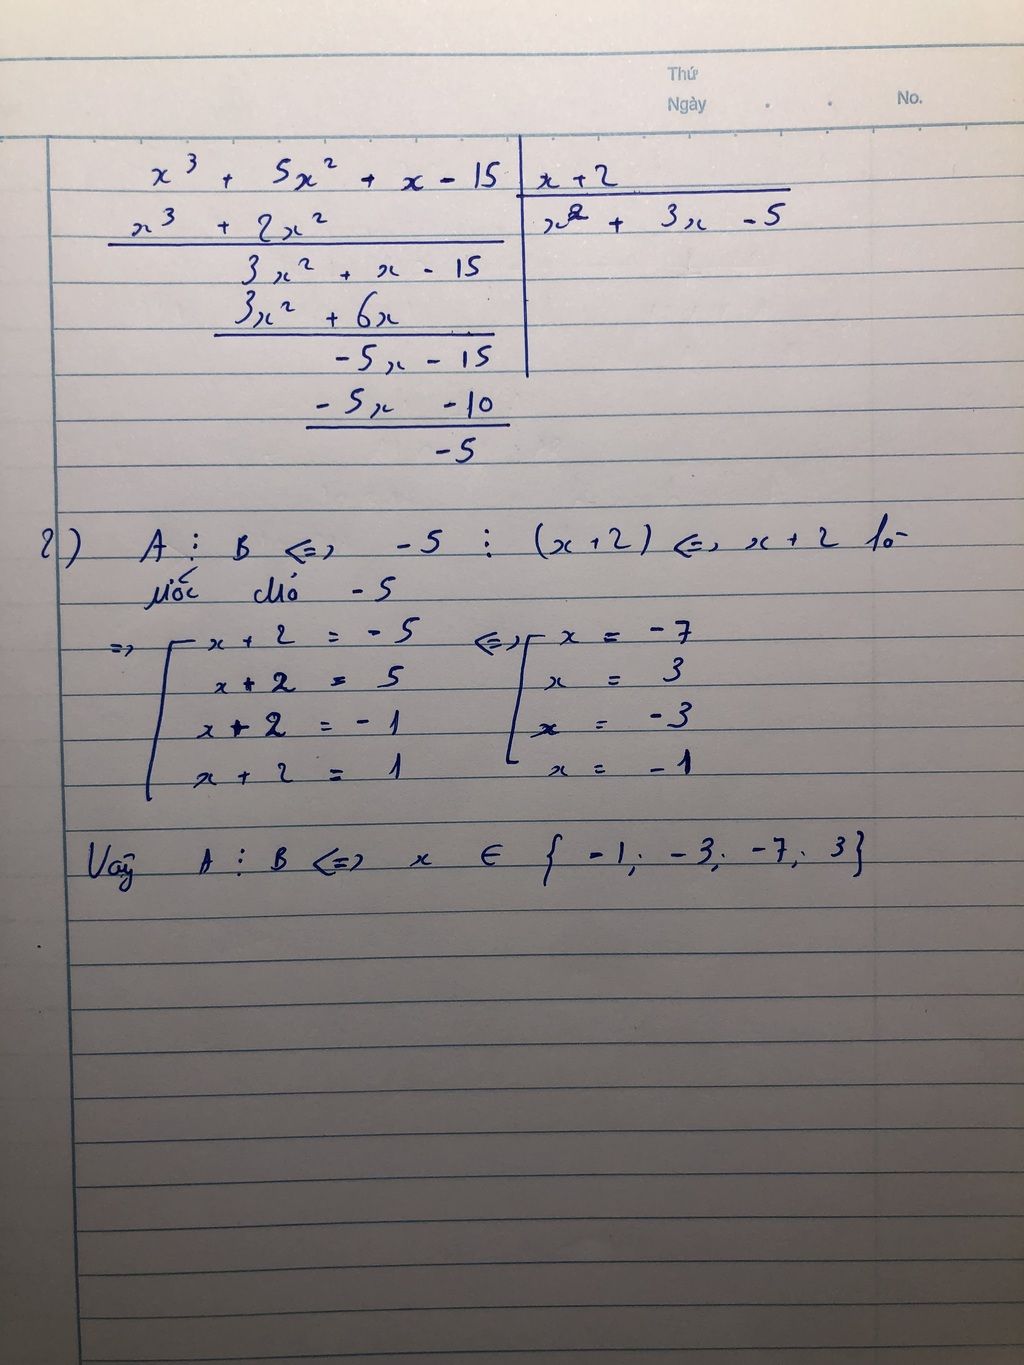 Thứ
Ngày . . No.
x³ + 5x² + x - 15 | x + 2
x³ + 2x² x² + 3x - 5
3x² + x - 15
3x² + 6x
-5x - 15
-5x -10
-5
2) A ⋮ B <=> -5 ⋮ (x + 2) <=> x + 2 là
ước của -5
=> [ x + 2 = -5 <=> [ x = -7
x + 2 = 5 x = 3
x + 2 = -1 x = -3
x + 2 = 1 x = -1
Vậy A ⋮ B <=> x ∈ { -1; -3; -7; 3}